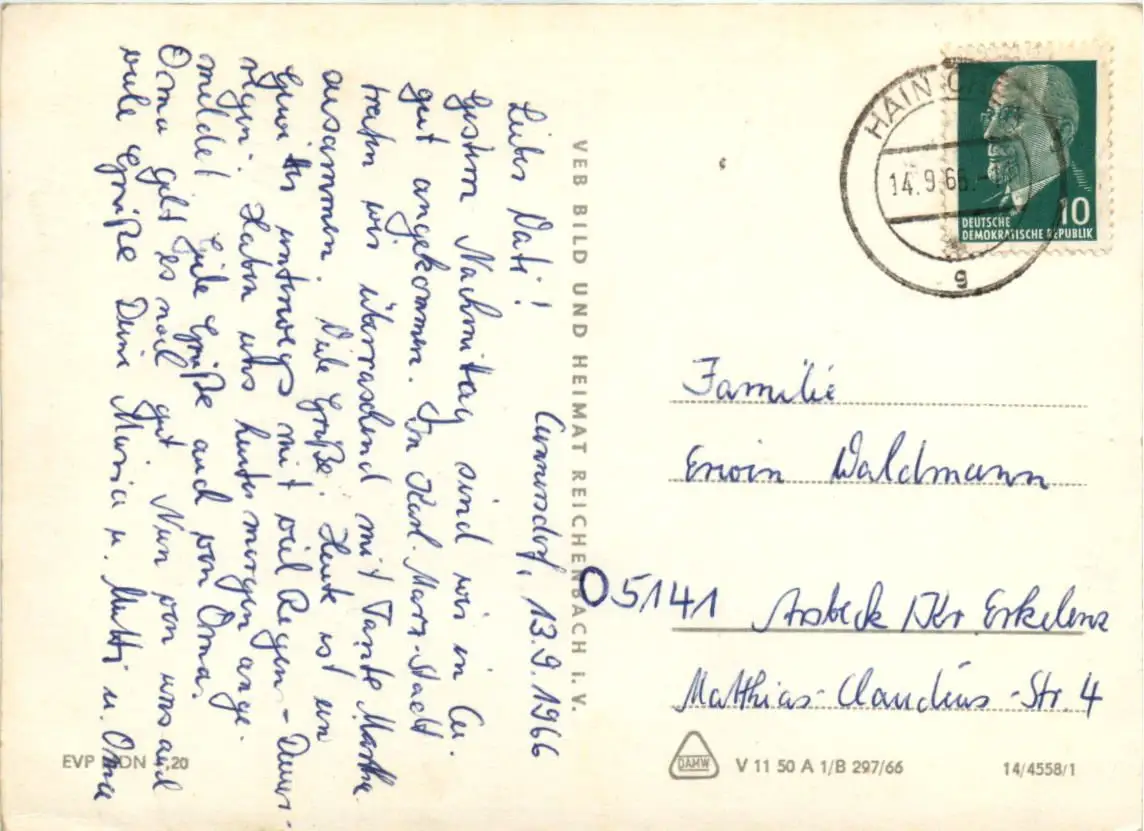 Cunnersdorf, 13.9.1966
Lieber Vati!
Gestern Nachmittag sind wir in Cu.
gut angekommen. In Karl-Marx-Stadt
trafen wir überraschend mit Tante Martha
zusammen. Viele Grüße. Heute ist ein
Gewitter unterwegs mit viel Regen-Dauer-
regen. Haben uns heute morgen ange-
meldet. Viele Grüße auch von Oma.
Oma geht es noch gut. Nun von uns auch
viele Grüße Deine Maria u. Mutti u. Oma
VEB BILD UND HEIMAT REICHENBACH i. V.
HAINICH
14.9.66
g
10
DEUTSCHE
DEMOKRATISCHE REPUBLIK
Familie
Erwin Waldmann
O5141 Arsbeck /Kr Erkelenz
Matthias-Claudius-Str. 4
EVP MDN 0,20
DAMW
V 11 50 A 1/B 297/66
14/4558/1